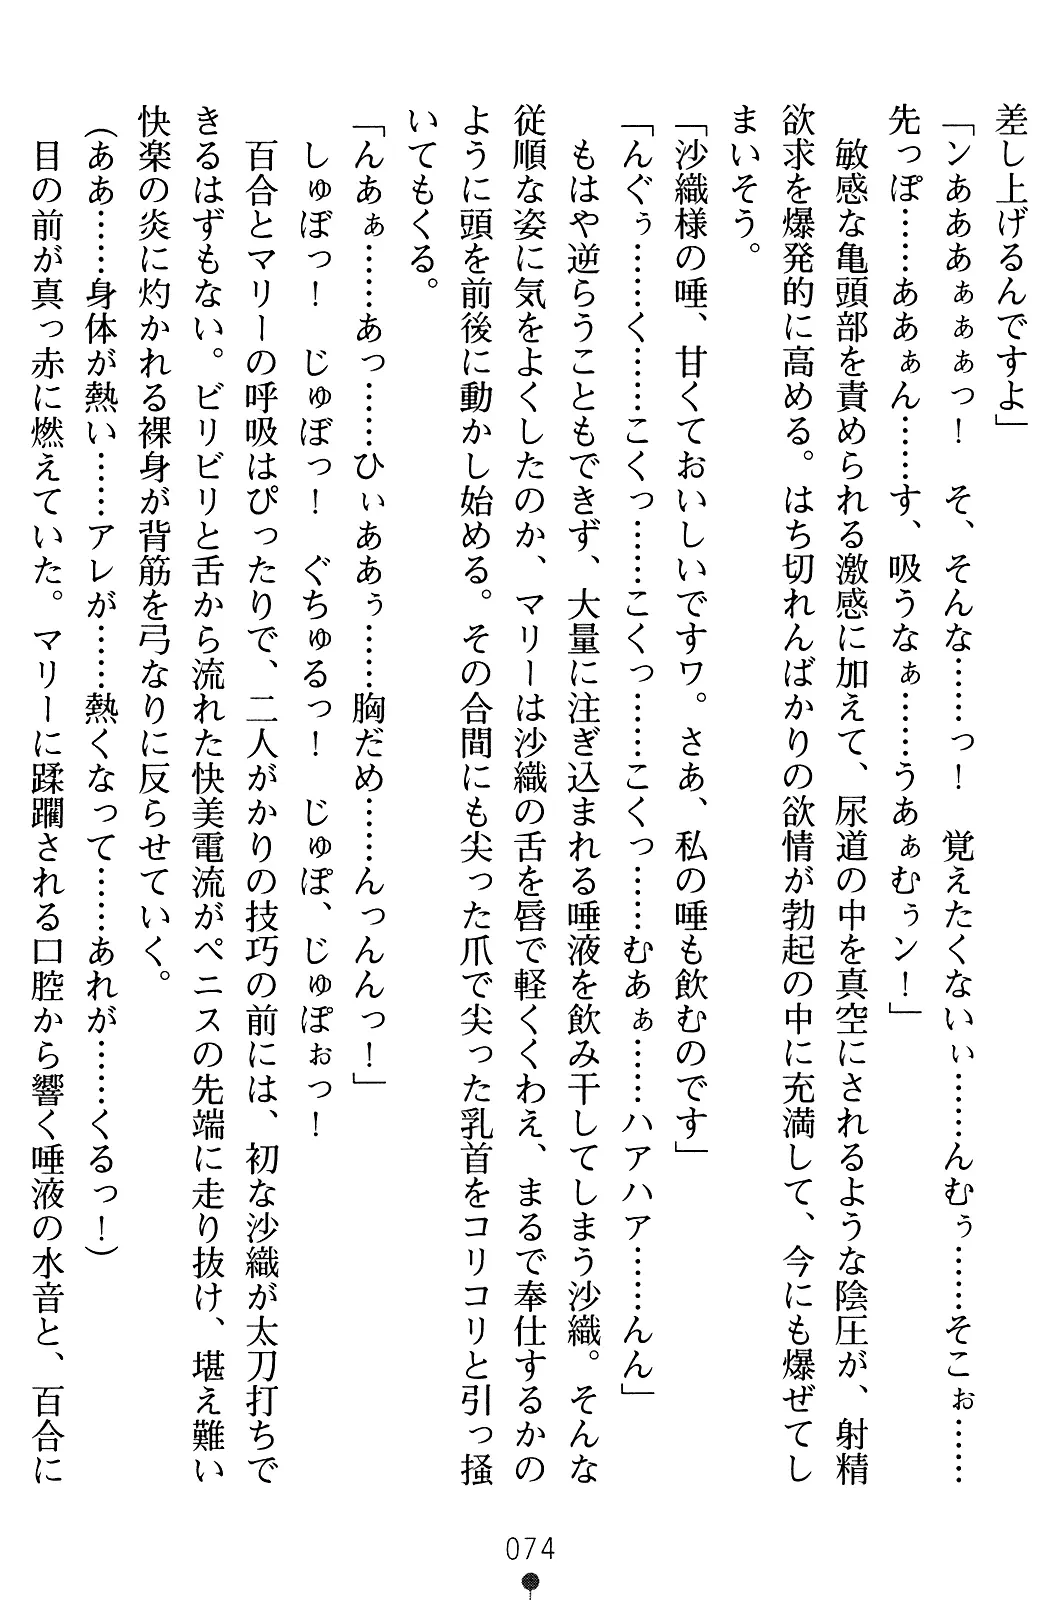 差し上げるんですよ」
「ンあああぁぁぁっ！　そ、そんな……っ！　覚えたくないぃ……んむぅ……そこぉ……
先っぽ……ああぁん……す、吸うなぁ……うあぁむぅン！」
　敏感な亀頭部を責められる激感に加えて、尿道の中を真空にされるような陰圧が、射精
欲求を爆発的に高める。はち切れんばかりの欲情が勃起の中に充満して、今にも爆ぜてし
まいそう。
「沙織様の唾、甘くておいしいですワ。さあ、私の唾も飲むのです」
「んぐぅ……く……こくっ……こくっ……こくっ……むあぁ……ハアハア……んん」
　もはや逆らうこともできず、大量に注ぎ込まれる唾液を飲み干してしまう沙織。そんな
従順な姿に気をよくしたのか、マリーは沙織の舌を唇で軽くくわえ、まるで奉仕するかの
ように頭を前後に動かし始める。その合間にも尖った爪で尖った乳首をコリコリと引っ掻
いてもくる。
「んあぁ……あっ……ひぃああぅ……胸だめ……んっんんっ！」
　しゅぼっ！　じゅぼっ！　ぐちゅるっ！　じゅぽ、じゅぽぉっ！
　百合とマリーの呼吸はぴったりで、二人がかりの技巧の前には、初な沙織が太刀打ちで
きるはずもない。ビリビリと舌から流れた快美電流がペニスの先端に走り抜け、堪え難い
快楽の炎に灼かれる裸身が背筋を弓なりに反らせていく。
(ああ……身体が熱い……アレが……熱くなって……あれが……くるっ！)
　目の前が真っ赤に燃えていた。マリーに蹂躙される口腔から響く唾液の水音と、百合に
074